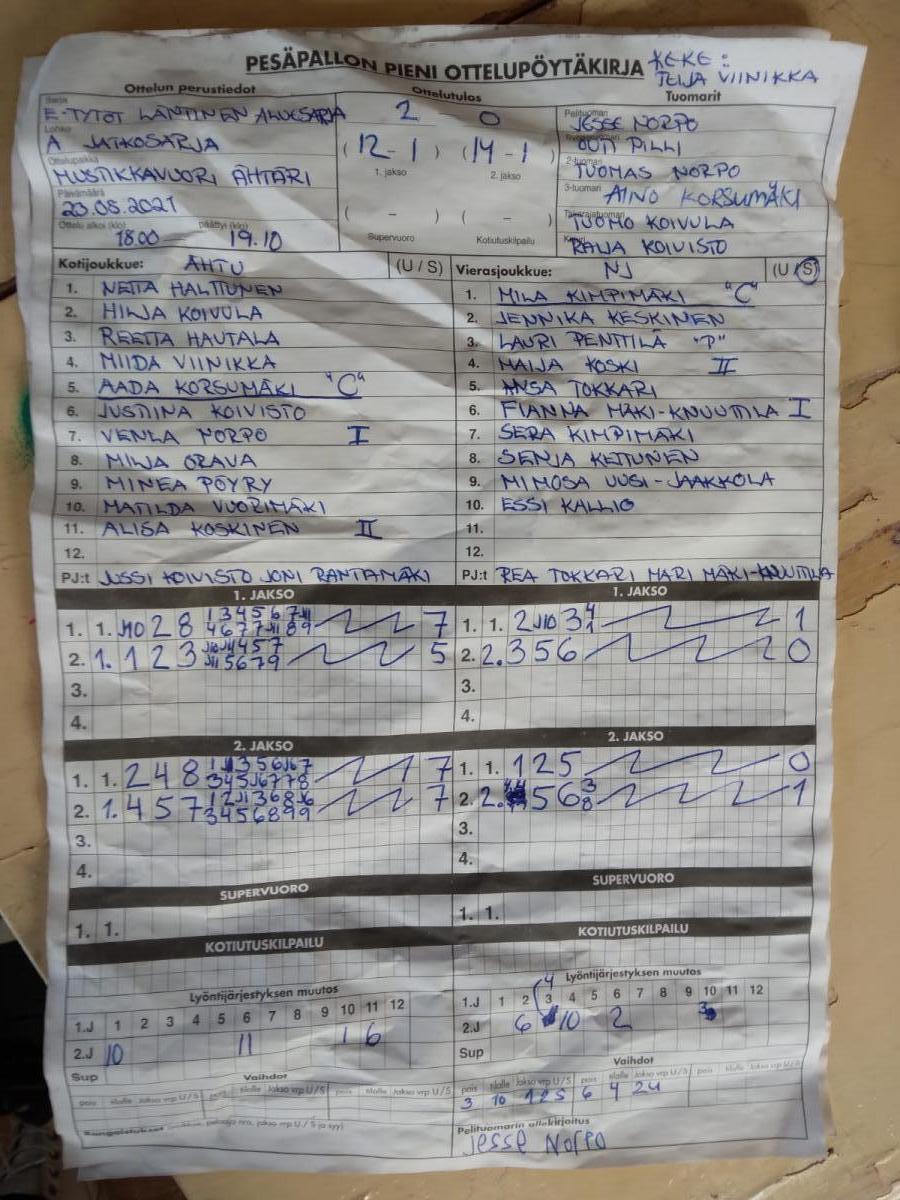 PESÄPALLON PIENI OTTELUPÖYTÄKIRJA
KEKE:
TEIJA VIINIKKA
Ottelun perustiedot
Ottelutulos
Tuomarit
Sarja
E-TYTÖT LÄNTINEN ALUESARJA
2 0
Pelituomari
JESSE NORPO
Lohko
A JATKOSARJA
(12-1) (14-1)
1. jakso 2. jakso
OUTI PILLI
Ottelupaikka
MUSTIKKAVUORI ÄHTÄRI
2-tuomari
TUOMAS NORPO
Päivämäärä
23.08.2021
3-tuomari
AINO KORSUMÄKI
( - ) ( - )
Supervuoro Kotiutuskilpailu
Takarajatuomari
TUOMO KOIVULA
Ottelu alkoi (klo) päättyi (klo)
18.00 19.10
Kirjuri
RAIJA KOIVISTO
Kotijoukkue: ÄHTU (U / S)
1. NETTA HALTTUNEN
2. HILJA KOIVULA
3. REETTA HAUTALA
4. MIIDA VIINIKKA
5. AADA KORSUMÄKI "C"
6. JUSTIINA KOIVISTO
7. VENLA NORPO I
8. MILJA ORAVA
9. MINEA PÖYRY
10. MATILDA VUORIMÄKI
11. ALISA KOSKINEN II
12.
PJ:t JUSSI KOIVISTO JONI RANTAMÄKI
Vierasjoukkue: NJ (U / S)
1. MILA KIMPIMÄKI "C"
2. JENNIKA KESKINEN
3. LAURI PENTTILÄ "P"
4. MAIJA KOSKI II
5. ANSA TOKKARI
6. FIANNA MÄKI-KNUUTILA I
7. SERA KIMPIMÄKI
8. SENJA KETTUNEN
9. MIMOSA UUSI-JAAKKOLA
10. ESSI KALLIO
11.
12.
PJ:t REA TOKKARI MARI MÄKI-KNUUTILA
1. JAKSO
1. 1. J10 2 8 7
2. 1. 1 2 3 5
3.
4.
1. JAKSO
1. 1. 2 J10 3 1
2. 2. 3 5 6 0
3.
4.
2. JAKSO
1. 1. 2 4 8 7
2. 1. 4 5 7 7
3.
4.
2. JAKSO
1. 1. 1 2 5 0
2. 2. 5 6 1
3.
4.
SUPERVUORO
1. 1.
SUPERVUORO
1. 1.
KOTIUTUSKILPAILU
KOTIUTUSKILPAILU
Lyöntijärjestyksen muutos
1.J 1 2 3 4 5 6 7 8 9 10 11 12
2.J 10 11 1 6
Sup
Vaihdot
pois tilalle Jakso vrp U/S pois tilalle Jakso vrp U/S pois tilalle Jakso vrp U/S
Rangaistukset
Lyöntijärjestyksen muutos
4
1.J 1 2 3 4 5 6 7 8 9 10 11 12
2.J 6 10 2
Sup
Vaihdot
pois tilalle Jakso vrp U/S pois tilalle Jakso vrp U/S pois tilalle Jakso vrp U/S
3 10 12S 6 4 2U
Pelituomarin allekirjoitus
Jesse Norpo